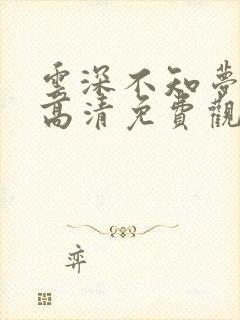 雲深不知夢
高清免費觀
弈